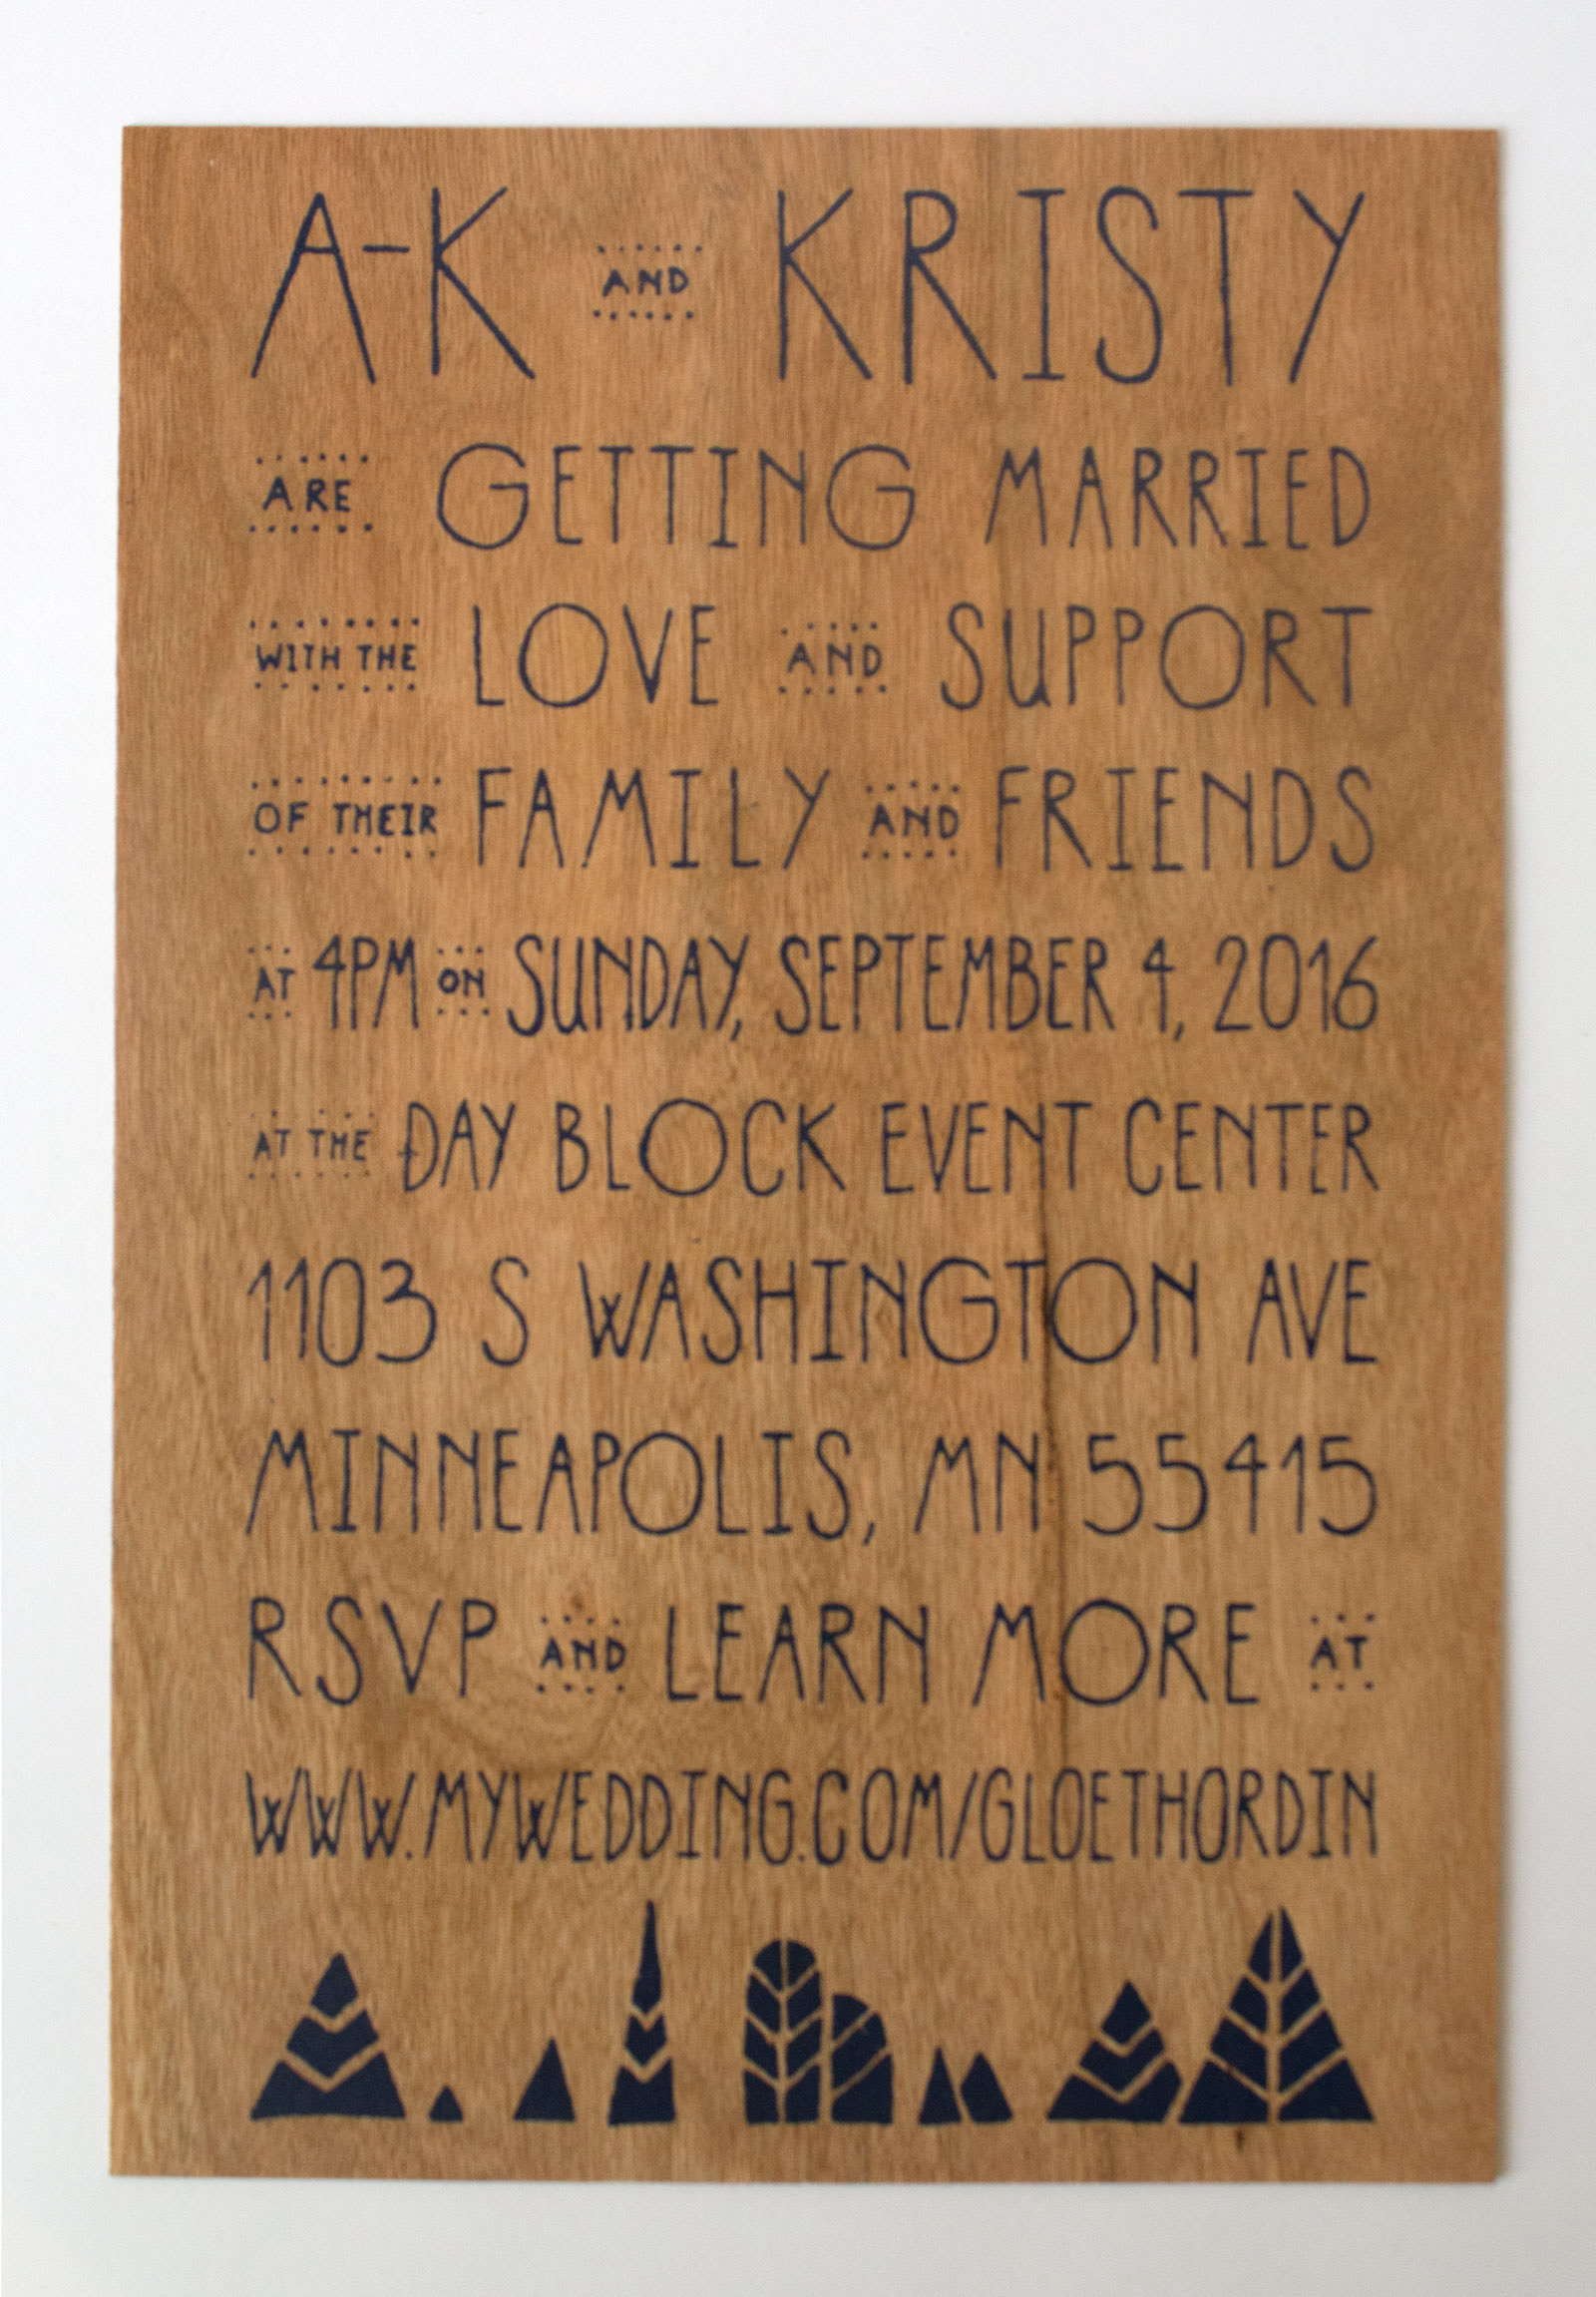 A-K AND KRISTY
ARE GETTING MARRIED
WITH THE LOVE AND SUPPORT
OF THEIR FAMILY AND FRIENDS
AT 4PM ON SUNDAY, SEPTEMBER 4, 2016
AT THE DAY BLOCK EVENT CENTER
1103 S WASHINGTON AVE
MINNEAPOLIS, MN 55415
RSVP AND LEARN MORE AT
WWW.MYWEDDING.COM/GLOETHORDIN